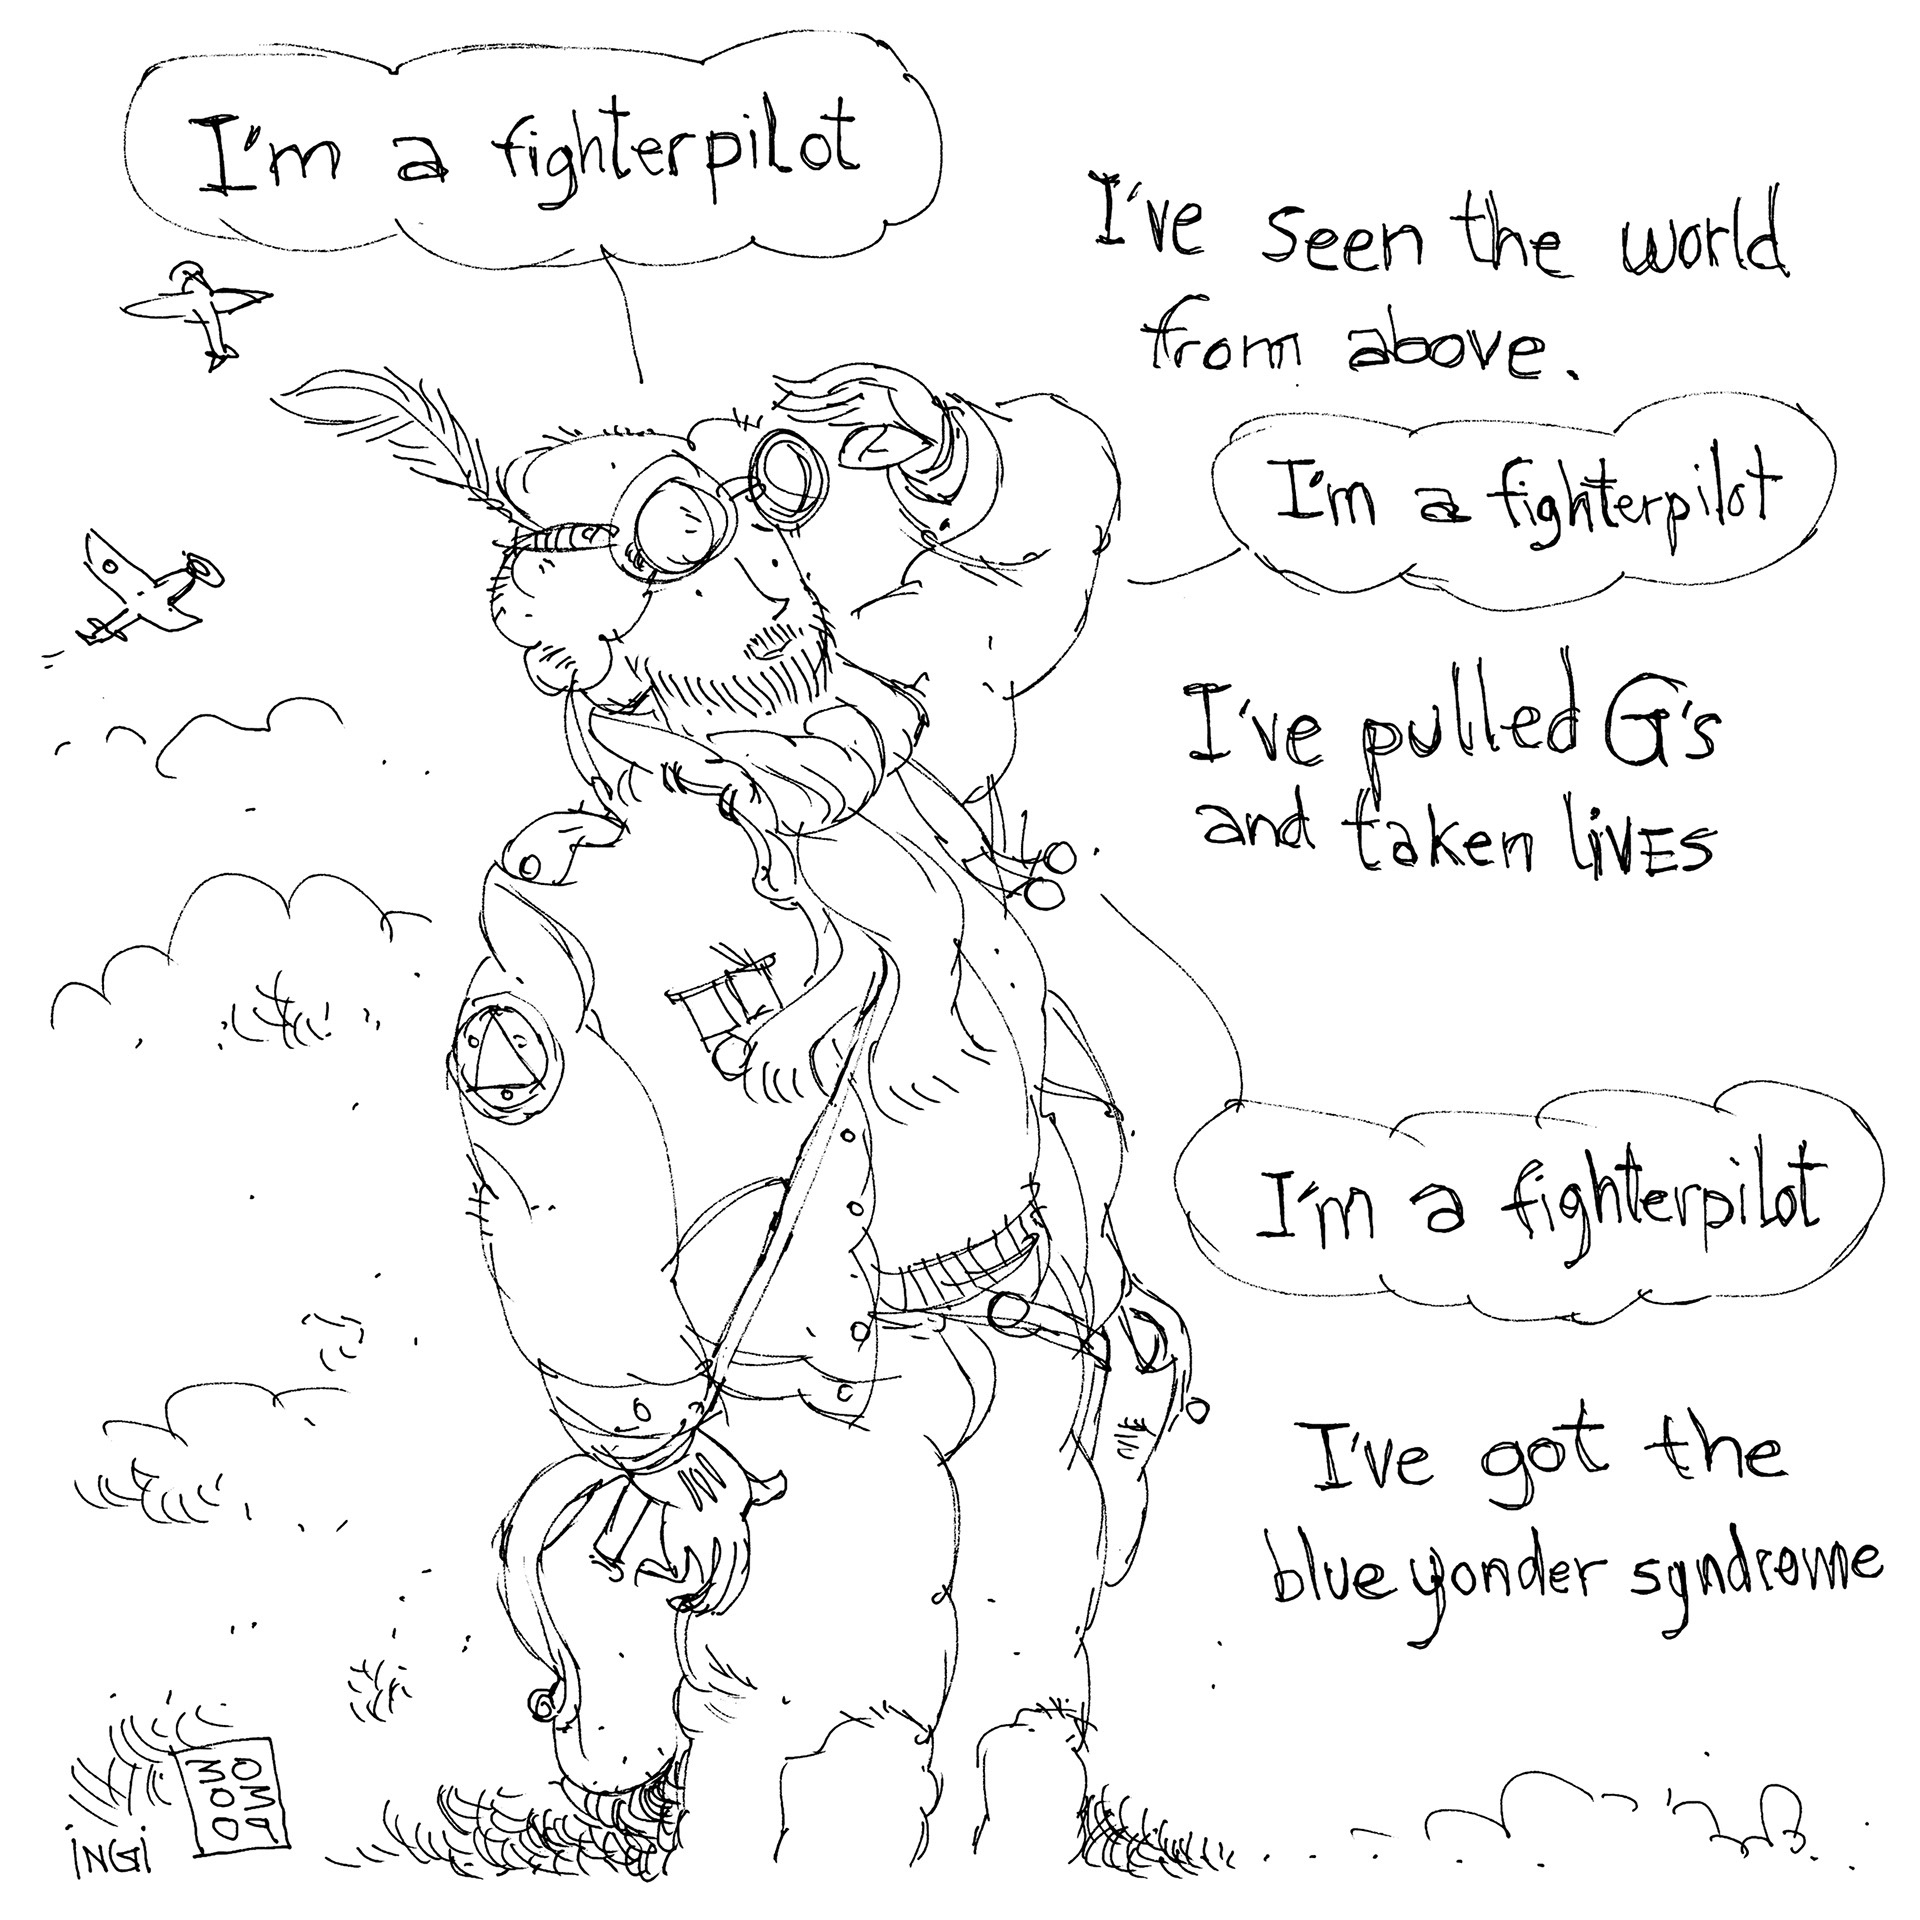 I'm a fighterpilot
I've seen the world
from above.
I'm a fighterpilot
I've pulled G's
and taken lIVES
I'm a fighterpilot
I've got the
blue yonder syndrome
iNGi